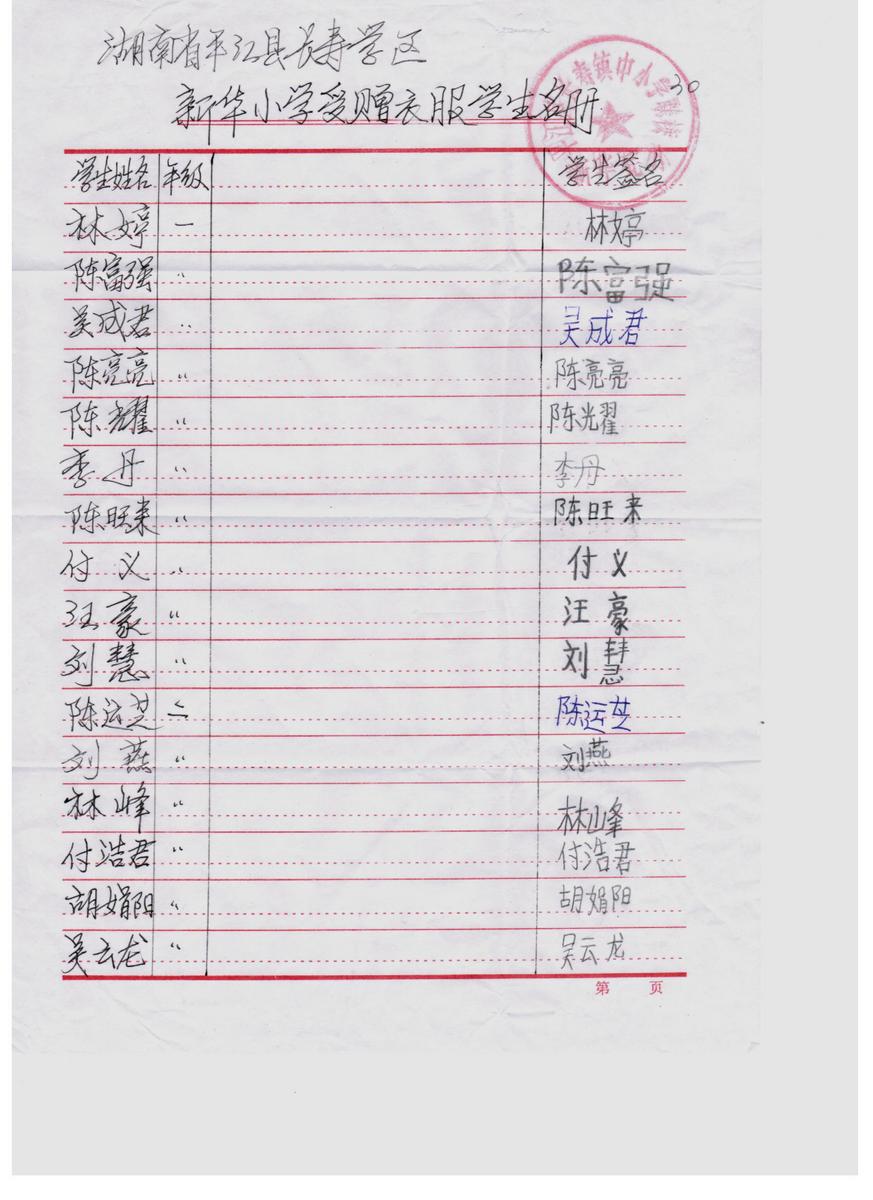 湖南省平江县长寿学区
新华小学受赠衣服学生名册 30
学生姓名 年级 学生签名
林婷 一 林婷
陈富强 〃 陈富强
吴成君 〃 吴成君
陈亮亮 〃 陈亮亮
陈光耀 〃 陈光耀
李丹 〃 李丹
陈旺来 〃 陈旺来
付义 〃 付义
汪豪 〃 汪豪
刘慧 〃 刘慧
陈运芝 二 陈运芝
刘燕 〃 刘燕
林峰 〃 林峰
付浩君 〃 付浩君
胡娟阳 〃 胡娟阳
吴云龙 〃 吴云龙
第 页